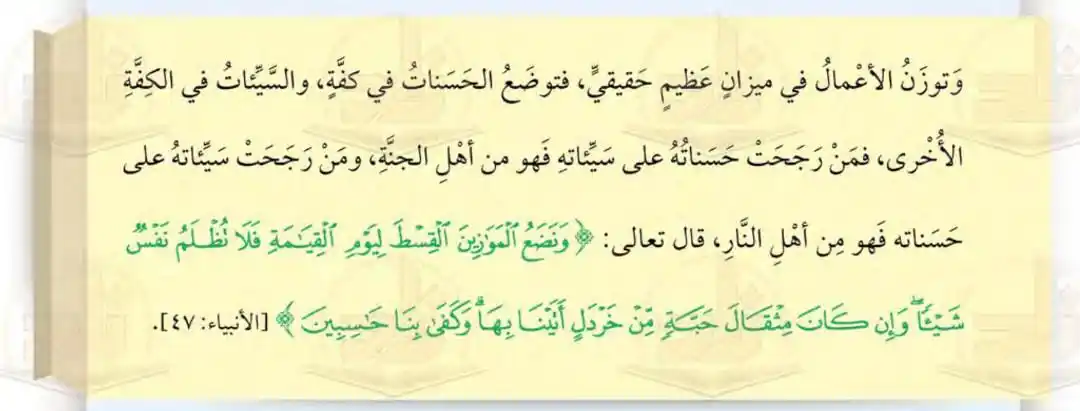 وَتوزَنُ الأعْمالُ في ميزانٍ عَظيمٍ حَقيقيٍّ، فتوضَعُ الحَسَناتُ في كفَّةٍ، والسَّيِّئاتُ في الكِفَّةِ
الأُخْرى، فمَنْ رَجَحَتْ حَسَناتُهُ على سَيِّئاتهِ فَهو من أهْلِ الجنَّةِ، ومَنْ رَجَحَتْ سَيِّئاتهُ على
حَسَناته فَهو مِن أهْلِ النَّارِ، قال تعالى: ﴿ وَنَضَعُ ٱلْمَوَٰزِينَ ٱلْقِسْطَ لِيَوْمِ ٱلْقِيَٰمَةِ فَلَا تُظْلَمُ نَفْسٌ
شَيْـًٔا ۖ وَإِن كَانَ مِثْقَالَ حَبَّةٍ مِّنْ خَرْدَلٍ أَتَيْنَا بِهَا ۗ وَكَفَىٰ بِنَا حَٰسِبِينَ ﴾ [الأنبياء: ٤٧].